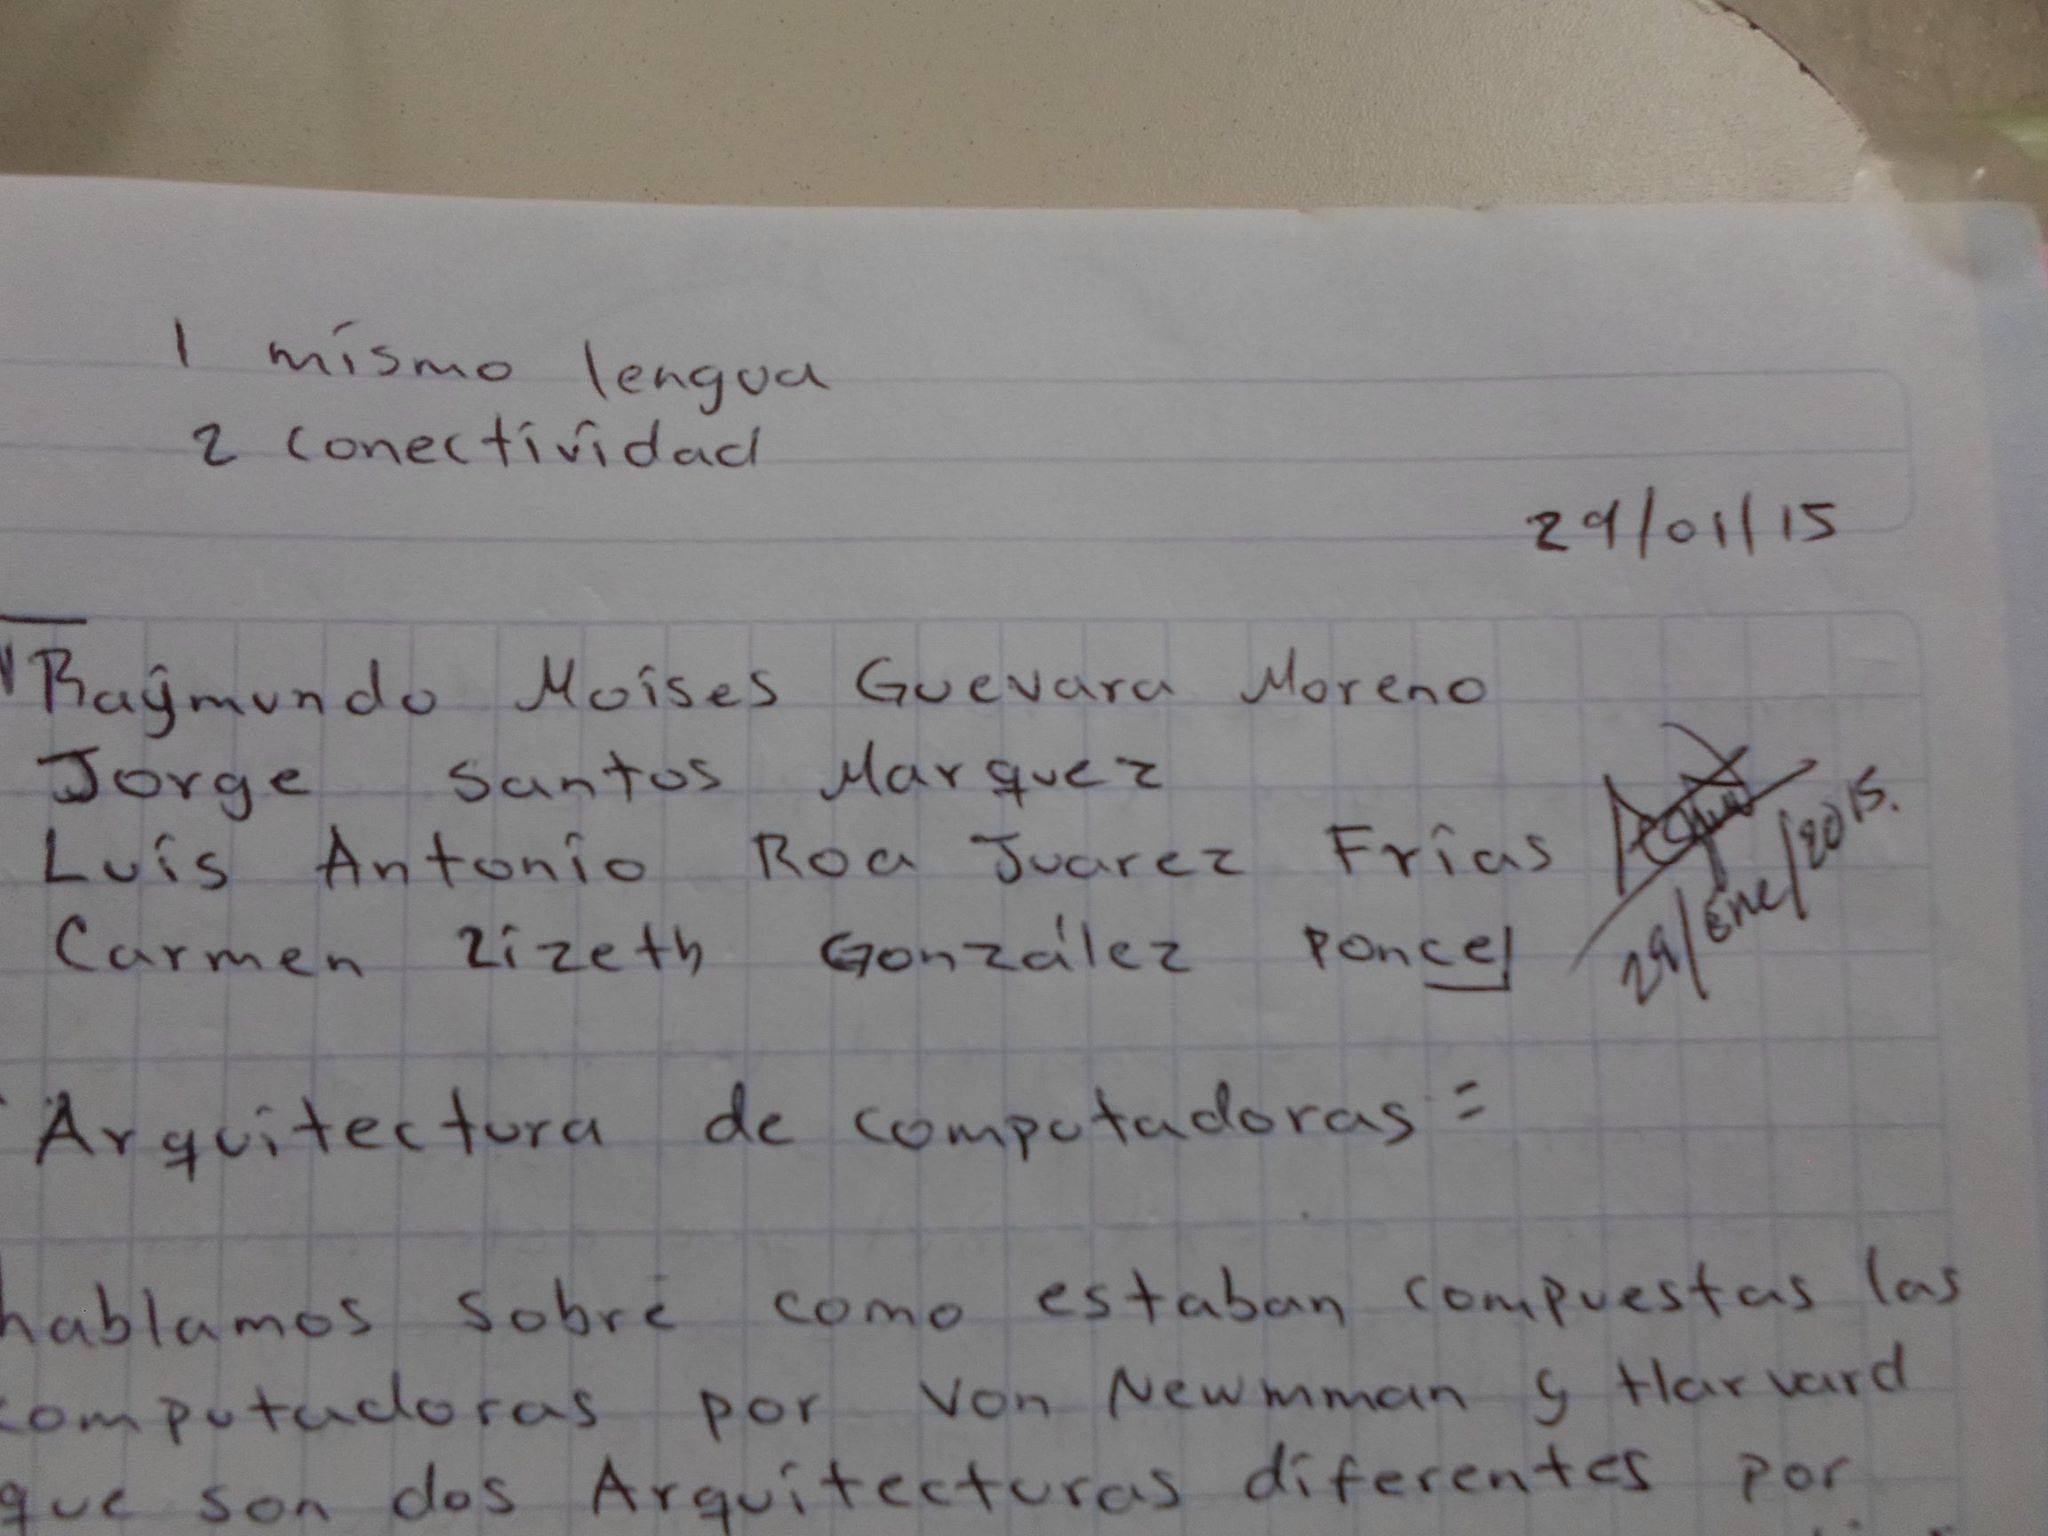 1 mismo lengua
2 conectividad
29/01/15
Raymundo Moises Guevara Moreno
Jorge Santos Marquez
Luis Antonio Roa Juarez Frias
Carmen Lizeth González Poncel
29/Ene/2015.
Arquitectura de computadoras =
hablamos sobre como estaban compuestas las
computadoras por Von Newmman y Harvard
que son dos Arquitecturas diferentes por